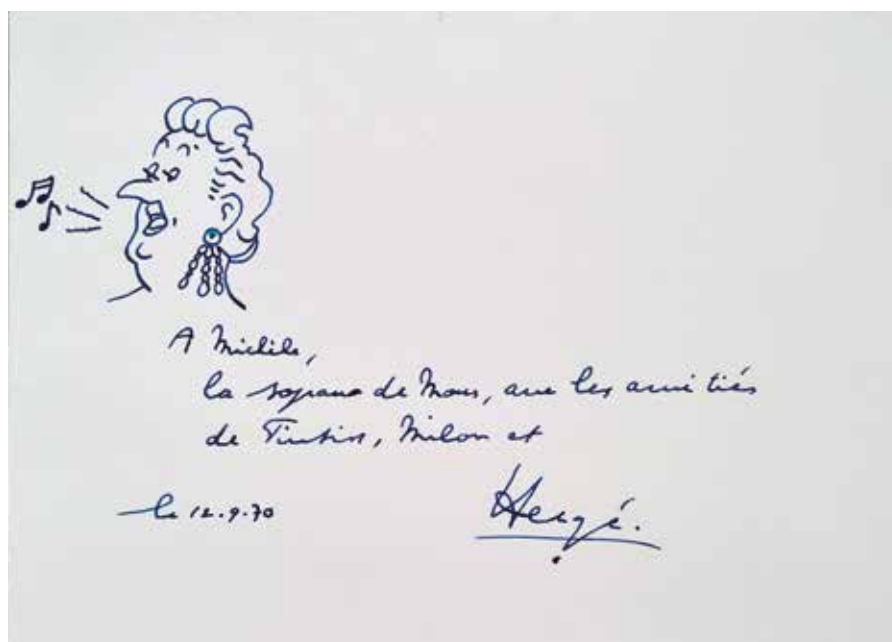 A Michèle,
la soprano de Mons, avec les amitiés
de Tintin, Milou et
le 12.9.70
Hergé.